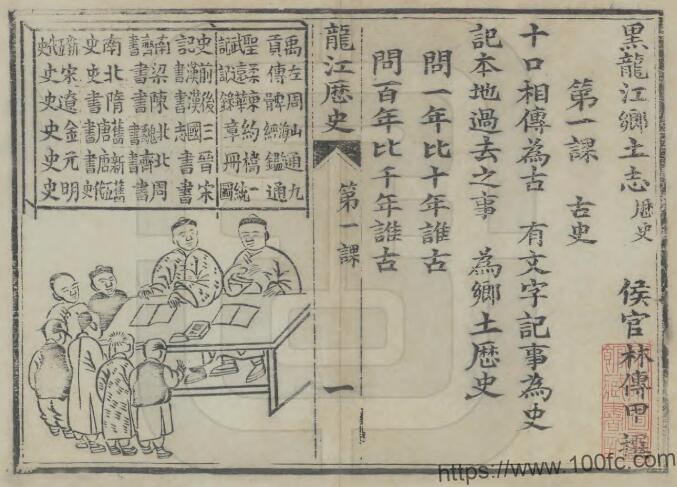 黑龍江鄉土志歷史 侯官林傳甲譔
第一課 古史
十口相傳為古 有文字記事為史
記本地過去之事 為鄉土歷史
問一年比十年誰古
問百年比千年誰古
龍江歷史 第一課 一
禹貢 左傳 周髀 山海經 通鑑 九通
聖武記 柔遠記 東華錄 約章 一統圖
史記 前漢書 後漢書 三國志 晉書 宋書
南齊書 梁書 陳書 魏書 北齊書 周書
南史 北史 隋書 舊唐書 新唐書 舊五代史
新五代史 宋史 遼史 金史 元史 明史
https://www.100fc.com